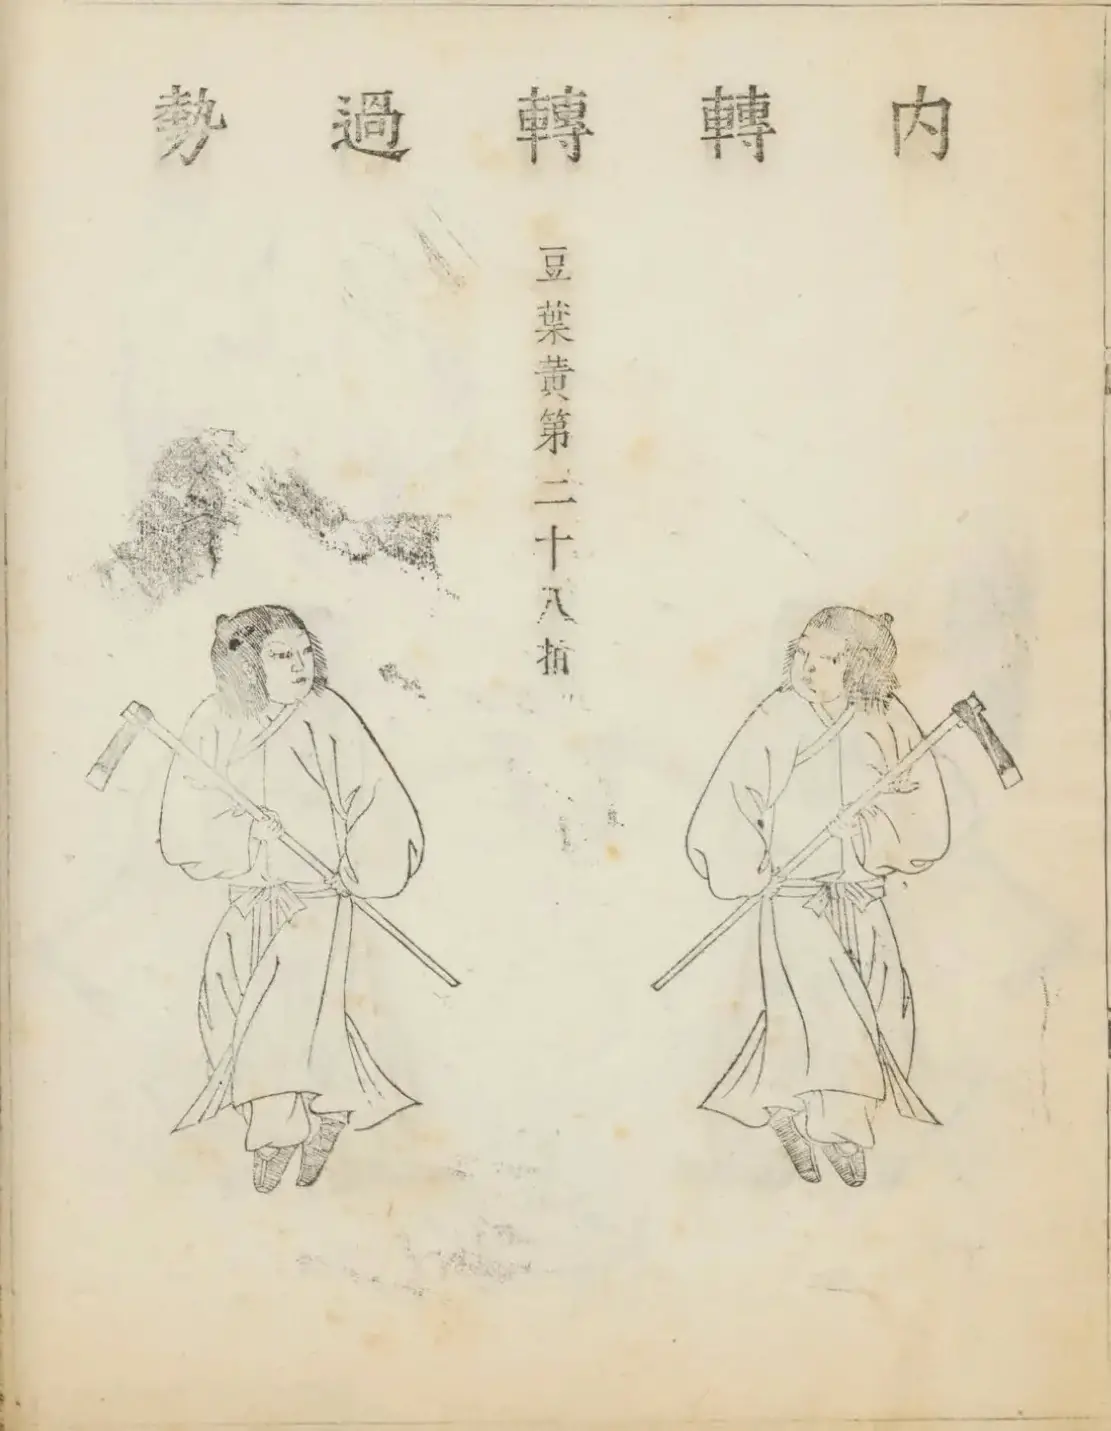 内轉轉過勢
豆葉黃第二十八拍